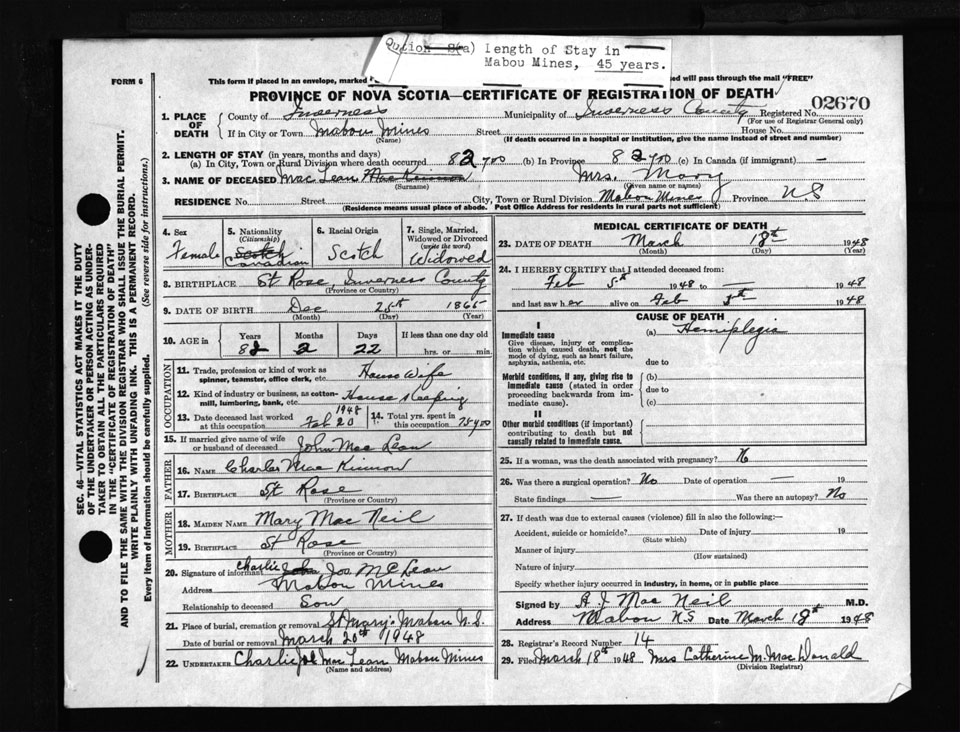 Question 2(a) Length of Stay in
Mabou Mines, 45 years.
FORM 6
This form if placed in an envelope, marked
ed will pass through the mail "FREE"
PROVINCE OF NOVA SCOTIA—CERTIFICATE OF REGISTRATION OF DEATH
02670
1. PLACE OF DEATH
County of Inverness Municipality of Inverness County Registered No.
(For use of Registrar General only)
If in City or Town Mabou Mines Street House No.
(Name) (If death occurred in a hospital or institution, give the name instead of street and number)
2. LENGTH OF STAY (in years, months and days)
(a) In City, Town or Rural Division where death occurred 82 yrs (b) In Province 82 yrs (c) In Canada (if immigrant) —
3. NAME OF DECEASED Mac Lean Mac Kinnon Mrs. Mary
(Surname) (Given name or names)
RESIDENCE No. Street City, Town or Rural Division Mabou Mines Province N.S
(Residence means usual place of abode. Post Office Address for residents in rural parts not sufficient)
4. Sex
Female
5. Nationality
(Citizenship)
Scotch
Canadian
6. Racial Origin
Scotch
7. Single, Married, Widowed or Divorced
(write the word)
Widowed
8. BIRTHPLACE St Rose, Inverness County
(Province or Country)
9. DATE OF BIRTH Dec 25th 1865
(Month) (Day) (Year)
10. AGE in
Years Months Days If less than one day old
82 2 22 hrs. or min.
OCCUPATION
11. Trade, profession or kind of work as
spinner, teamster, office clerk, etc. House Wife
12. Kind of industry or business, as cotton-
mill, lumbering, bank, etc. House Keeping
13. Date deceased last worked
at this occupation Feb 20 1948
14. Total yrs. spent in
this occupation 75 yrs
15. If married give name of wife
or husband of deceased John Mac Lean
FATHER
16. NAME Charles Mac Kinnon
17. BIRTHPLACE St Rose
(Province or Country)
MOTHER
18. MAIDEN NAME Mary Mac Neil
19. BIRTHPLACE St Rose
(Province or Country)
20. Signature of informant Charlie John Jos McLean
Address Mabou Mines
Relationship to deceased Son
21. Place of burial, cremation or removal St Marys Mabou N.S.
Date of burial or removal March 20th 1948
22. UNDERTAKER Charlie Jos Mac Lean Mabou Mines
(Name and address)
MEDICAL CERTIFICATE OF DEATH
23. DATE OF DEATH March 18th 1948
(Month) (Day) (Year)
24. I HEREBY CERTIFY that I attended deceased from:
Feb 5th 1948 to — 1948
and last saw her alive on Feb 5th 1948
CAUSE OF DEATH
I
Immediate cause (a) Hemiplegia
Give disease, injury or complica-
tion which caused death, not the
mode of dying, such as heart failure,
asphyxia, asthenia, etc.
due to
Morbid conditions, if any, giving rise to
immediate cause (stated in order
proceeding backwards from im-
mediate cause).
(b)
due to
(c)
II
Other morbid conditions (if important)
contributing to death but not
causally related to immediate cause.
25. If a woman, was the death associated with pregnancy?
26. Was there a surgical operation? No Date of operation — 19
State findings — Was there an autopsy? No
27. If death was due to external causes (violence) fill in also the following:—
Accident, suicide or homicide? Date of injury 19
(State which)
Manner of injury
(How sustained)
Nature of injury
Specify whether injury occurred in industry, in home, or in public place
Signed by A J Mac Neil M.D.
Address Mabou N S Date March 18th 1948
28. Registrar's Record Number 14
29. Filed March 18th 1948 Mrs Catherine M. Mac Donald
(Division Registrar)
SEC. 46—VITAL STATISTICS ACT MAKES IT THE DUTY
OF THE UNDERTAKER OR PERSON ACTING AS UNDER-
TAKER TO OBTAIN ALL THE PARTICULARS REQUIRED
IN THE "CERTIFICATE OF REGISTRATION OF DEATH"
AND TO FILE THE SAME WITH THE DIVISION REGISTRAR WHO SHALL ISSUE THE BURIAL PERMIT.
WRITE PLAINLY WITH UNFADING INK. THIS IS A PERMANENT RECORD.
Every item of information should be carefully supplied. (See reverse side for instructions.)